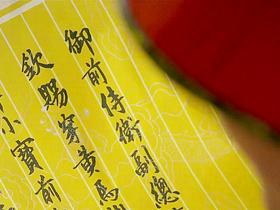 御前侍衛副總
欽賜穿黃馬
小寶前